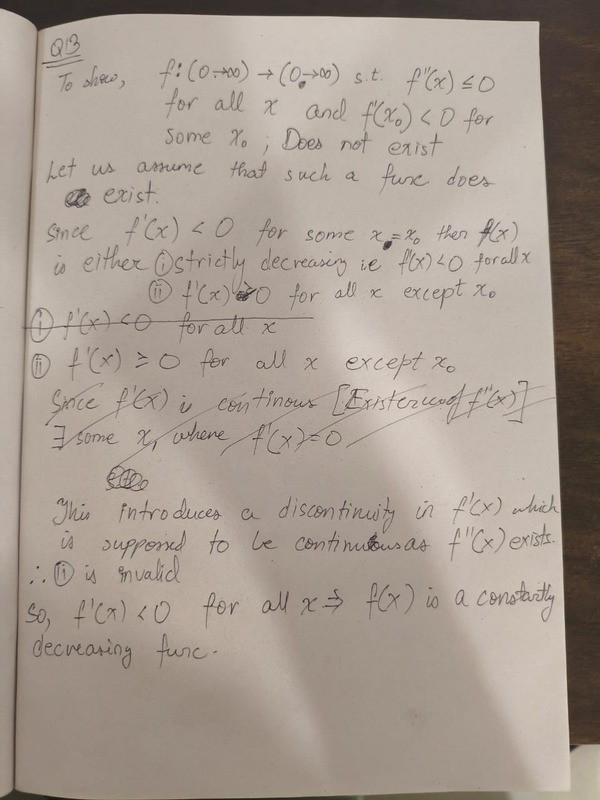 Q13
To show, f: (0→∞) → (0→∞) s.t. f''(x) ≤ 0
for all x and f'(x₀) < 0 for
some x₀ ; Does not exist
Let us assume that such a func does
exist.
Since f'(x) < 0 for some x = x₀ then f(x)
is either ⓘ strictly decreasing ie f'(x) < 0 for all x
ⓘⓘ f'(x) ≥ 0 for all x except x₀
ⓘ f'(x) < 0 for all x
ⓘⓘ f'(x) ≥ 0 for all x except x₀
Since f'(x) is continous [Existence of f''(x)]
∃ some x, where f'(x) = 0
This introduces a discontinuity in f'(x) which
is supposed to be continuous as f''(x) exists.
∴ ⓘⓘ is invalid
So, f'(x) < 0 for all x ⇒ f(x) is a constantly
decreasing func.